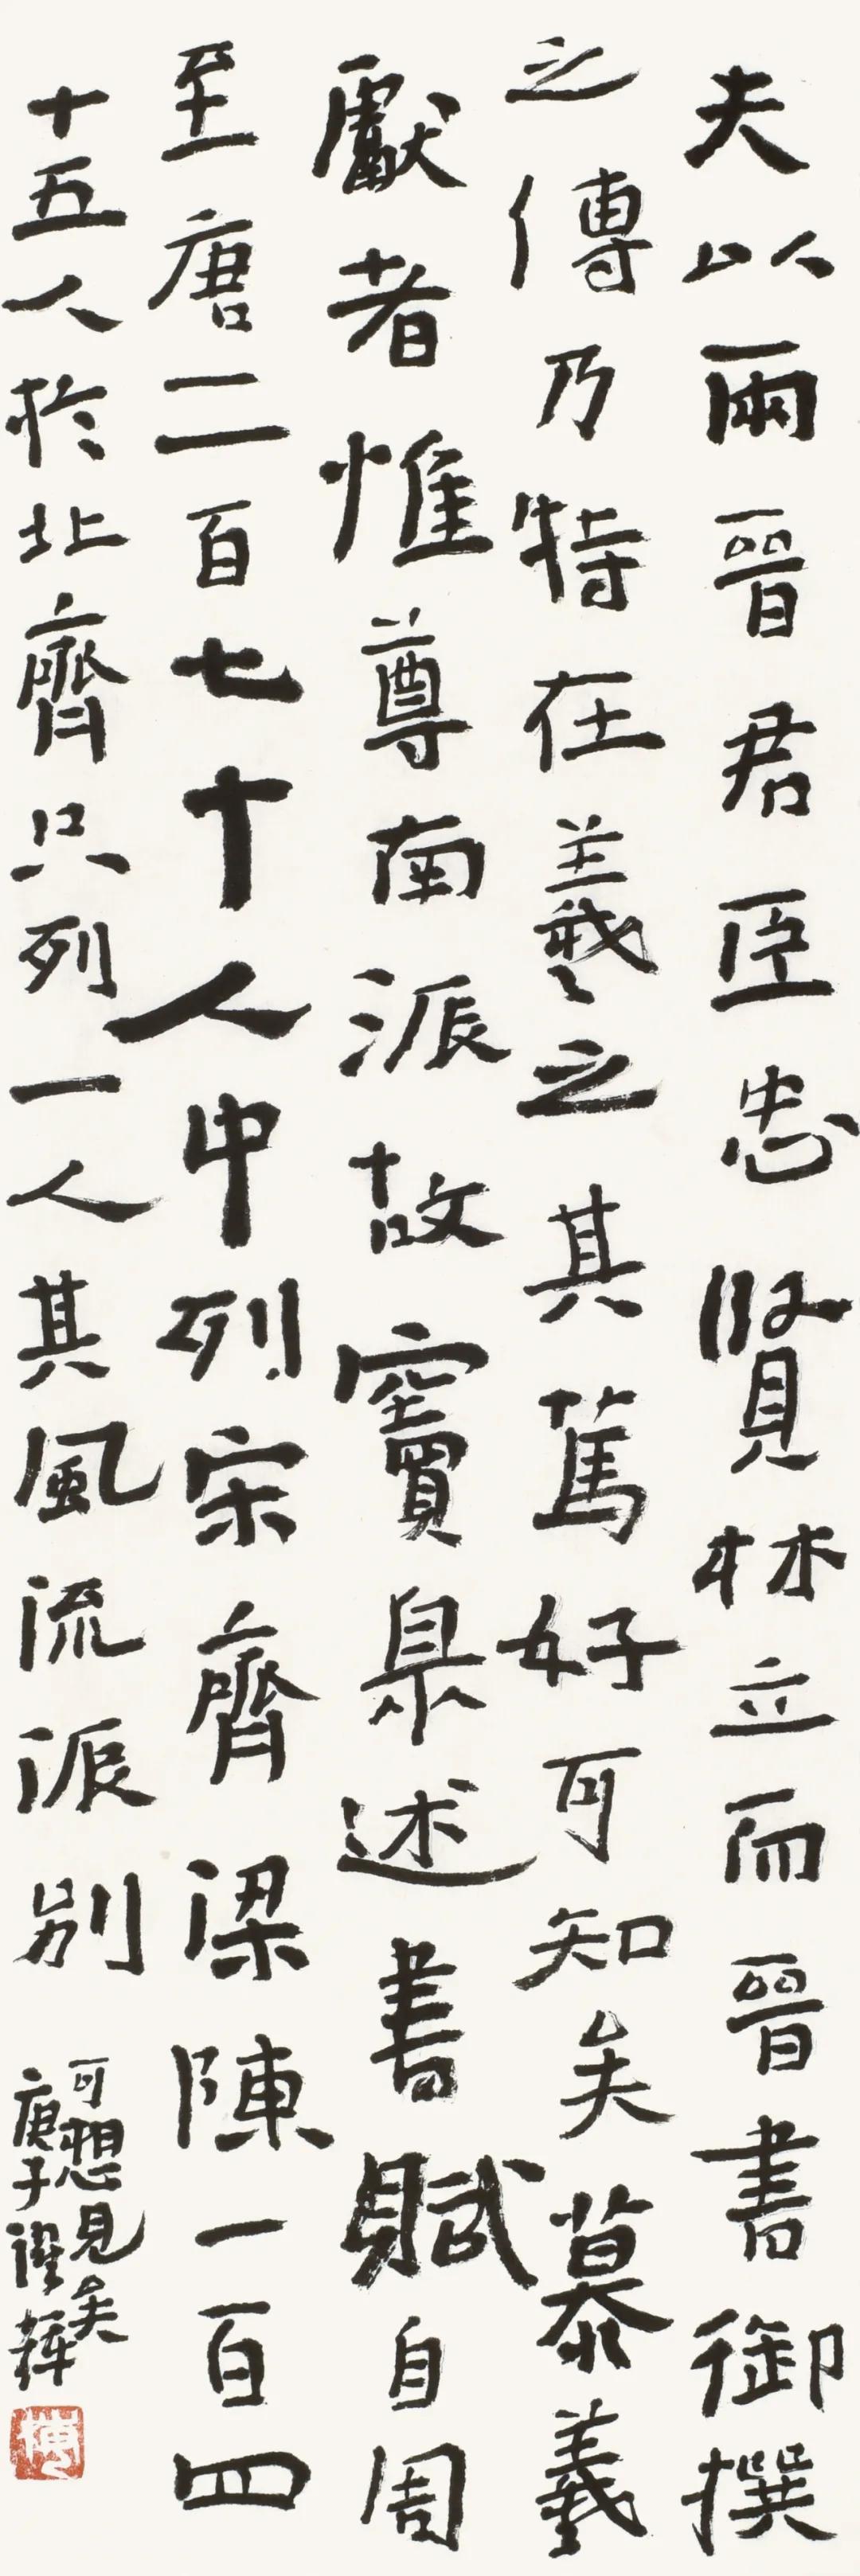 夫以兩晉君臣忠賢林立而晉書御撰
之傳乃特在羲之其篤好可知矣慕羲
獻者惟尊南派故竇臮述書賦自周
至唐二百七十人中列宋齊梁陳一百四
十五人於北齊只列一人其風流派別
可想見矣
庚子